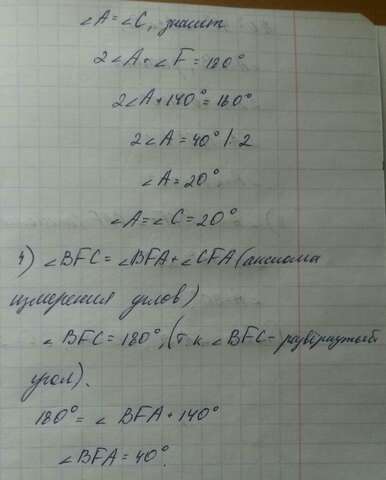 ∠A = ∠C, значит
2∠A + ∠F = 180°
2∠A + 140° = 180°
2∠A = 40° |: 2
∠A = 20°
∠A = ∠C = 20°
4) ∠BFC = ∠BFA + ∠CFA (аксиома
измерения углов)
∠BFC = 180°, (т.к ∠BFC - развёрнутый
угол).
180° = ∠BFA + 140°
∠BFA = 40°.